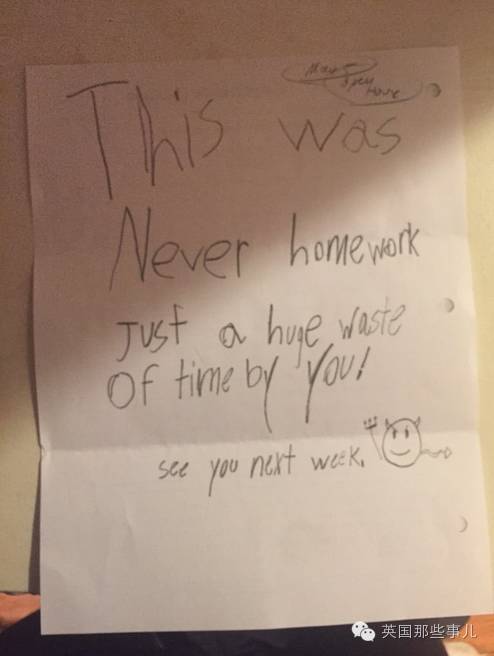 open
House
This was
Never homework
Just a huge waste
Of time by you!
see you next week.
英国那些事儿